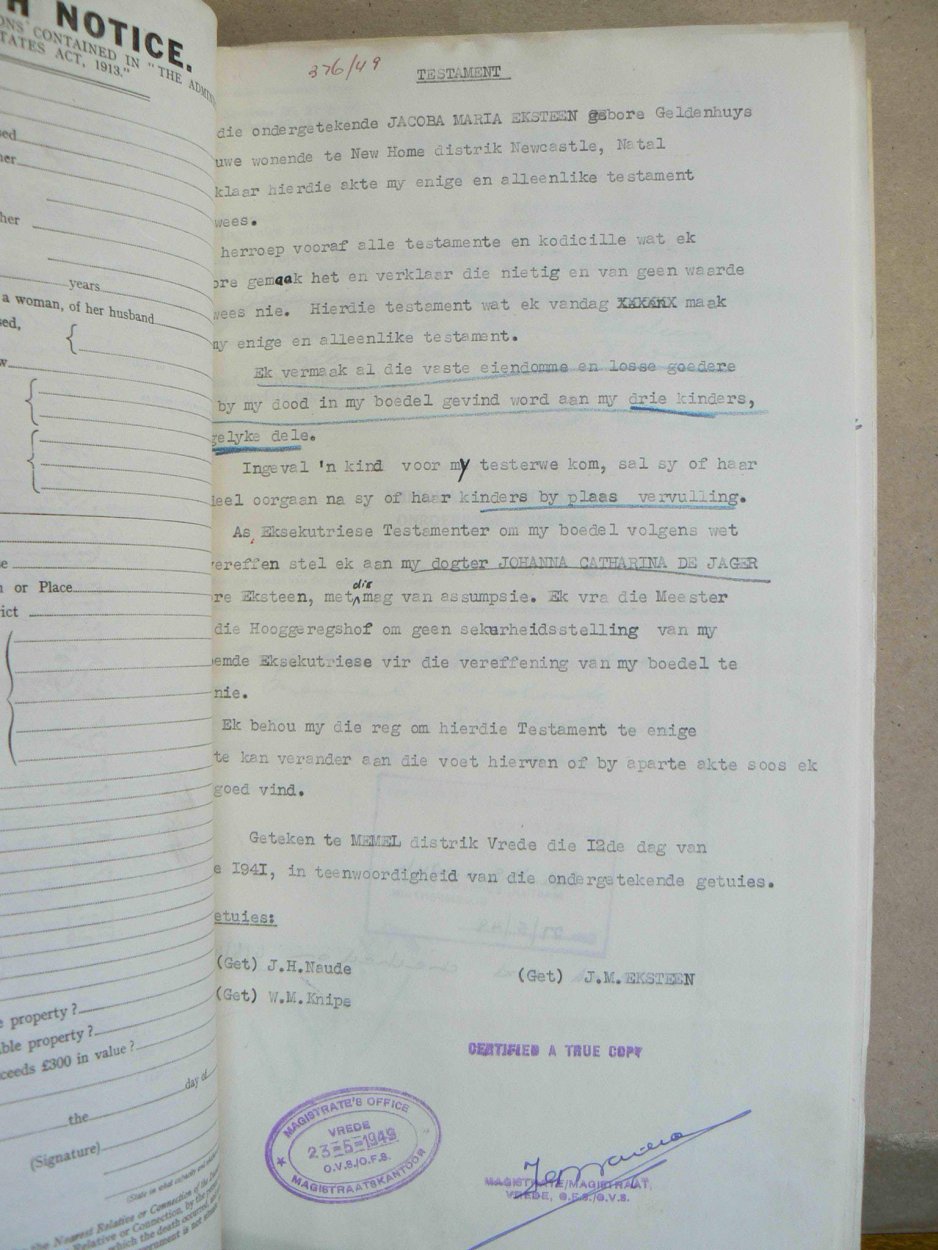 H NOTICE.
ONS CONTAINED IN "THE ADMIN
TATES ACT, 1913."
sed
her
her
years
a woman, of her husband
sed,
w
e
n or Place
ict
e property?
ble property?
ceeds £300 in value?
day of
the
(Signature)
(State in what capacity and
e Nearest Relative or Connection of the
Relative or Connection, by the
which the death occurred,
376/49
TESTAMENT
die ondergetekende JACOBA MARIA EKSTEEN gebore Geldenhuys
uwe wonende te New Home distrik Newcastle, Natal
klaar hierdie akte my enige en alleenlike testament
wees.
herroep vooraf alle testamente en kodicille wat ek
ore gemaak het en verklaar die nietig en van geen waarde
wees nie. Hierdie testament wat ek vandag XXXXXX maak
my enige en alleenlike testament.
Ek vermaak al die vaste eiendomme en losse goedere
by my dood in my boedel gevind word aan my drie kinders,
gelyke dele.
Ingeval 'n kind voor my testerwe kom, sal sy of haar
deel oorgaan na sy of haar kinders by plaas vervulling.
As Eksekutriese Testamenter om my boedel volgens wet
vereffen stel ek aan my dogter JOHANNA CATHARINA DE JAGER
re Eksteen, met die mag van assumpsie. Ek vra die Meester
die Hooggeregshof om geen sekurheidsstelling van my
emde Eksekutriese vir die vereffening van my boedel te
nie.
Ek behou my die reg om hierdie Testament te enige
te kan verander aan die voet hiervan of by aparte akte soos ek
goed vind.
Geteken te MEMEL distrik Vrede die 12de dag van
e 1941, in teenwoordigheid van die ondergetekende getuies.
etuies:
(Get) J.H.Naude
(Get) J.M.EKSTEEN
(Get) W.M.Knipe
CERTIFIED A TRUE COPY
MAGISTRATE'S OFFICE
VREDE
23-5-1949
O.V.S./O.F.S.
MAGISTRAATSKANTOOR
MAGISTRATE/MAGISTRAAT,
VREDE, O.F.S./O.V.S.